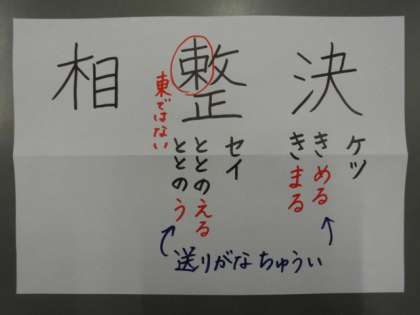 決
ケツ
きめる
きまる
整
セイ
ととのえる
ととのう
東ではない
相
送りがなちゅうい